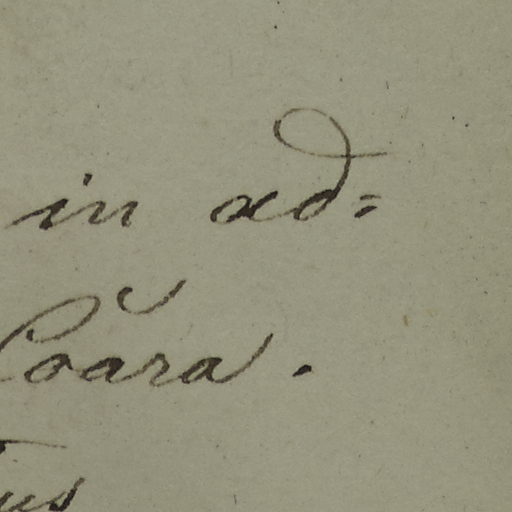 in ad=
Coara.
us